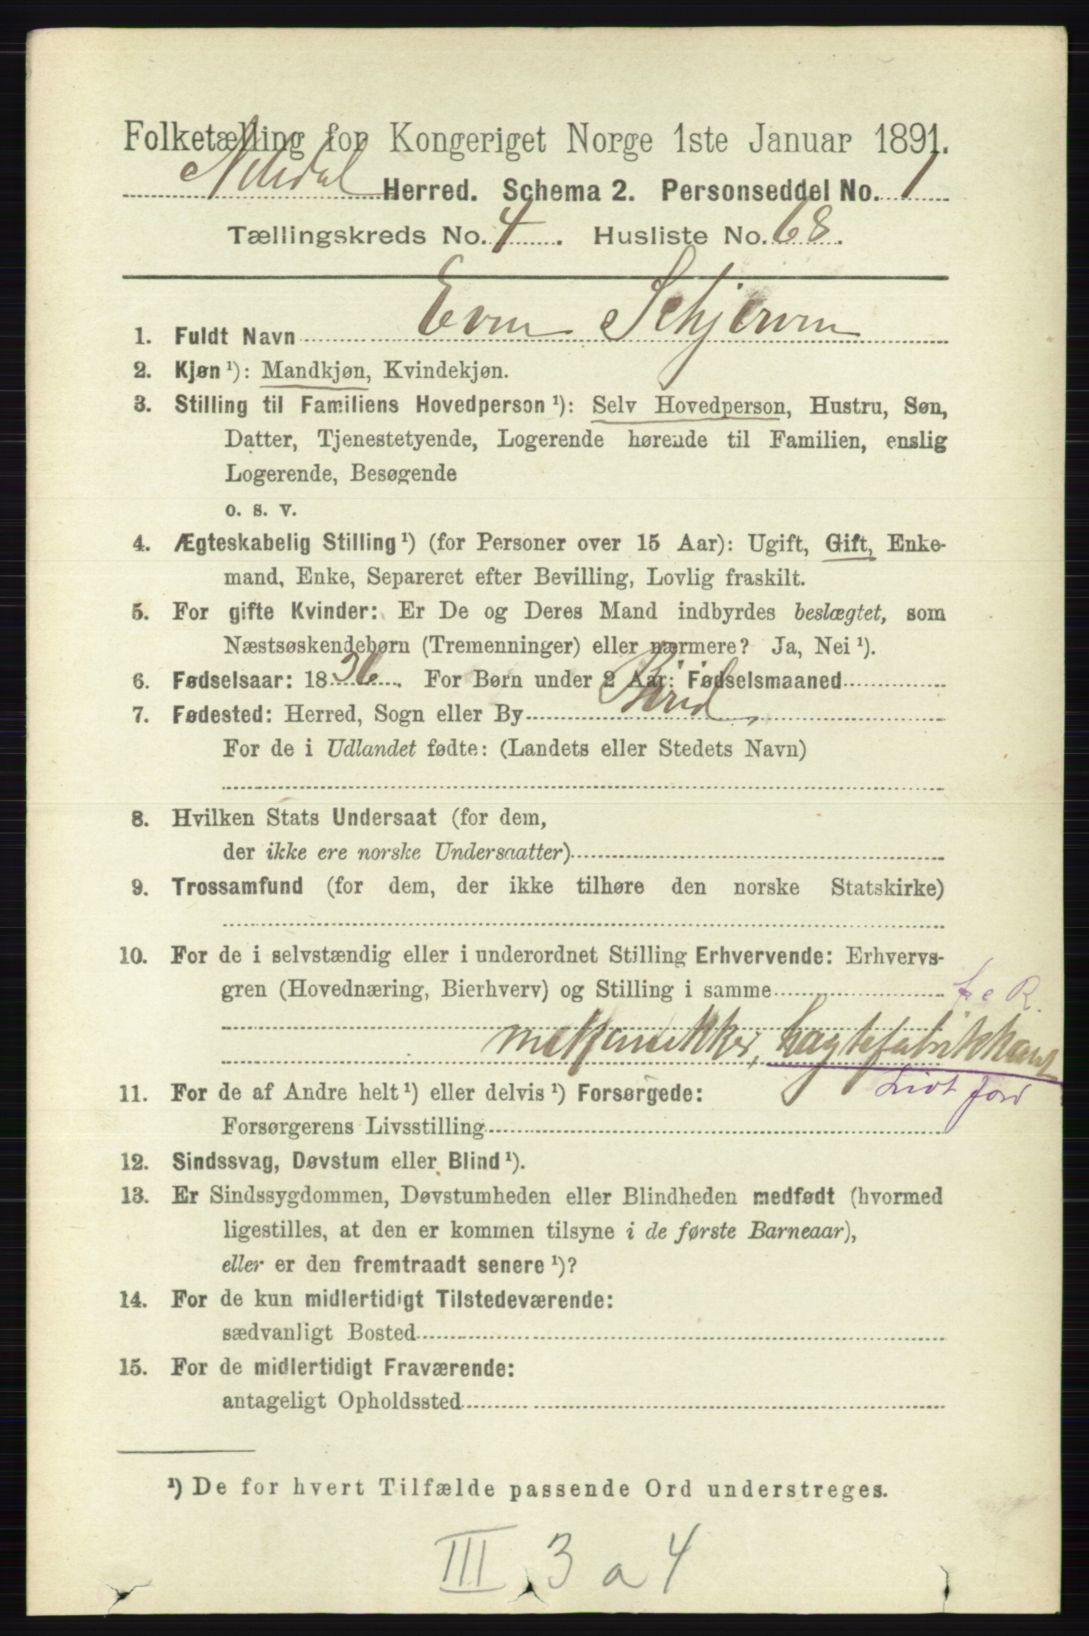 Folketælling for Kongeriget Norge 1ste Januar 1891.
Nitedal Herred. Schema 2. Personseddel No. 1
Tællingskreds No. 4. Husliste No. 68.
1. Fuldt Navn Even Schjerven
2. Kjøn ¹): Mandkjøn, Kvindekjøn.
3. Stilling til Familiens Hovedperson ¹): Selv Hovedperson, Hustru, Søn,
Datter, Tjenestetyende, Logerende hørende til Familien, enslig
Logerende, Besøgende
o. s. v.
4. Ægteskabelig Stilling ¹) (for Personer over 15 Aar): Ugift, Gift, Enke-
mand, Enke, Separeret efter Bevilling, Lovlig fraskilt.
5. For gifte Kvinder: Er De og Deres Mand indbyrdes beslægtet, som
Næstsøskendebørn (Tremenninger) eller nærmere? Ja, Nei ¹).
6. Fødselsaar: 1836. For Børn under 2 Aar: Fødselsmaaned
7. Fødested: Herred, Sogn eller By Birid
For de i Udlandet fødte: (Landets eller Stedets Navn)
8. Hvilken Stats Undersaat (for dem,
der ikke ere norske Undersaatter)
9. Trossamfund (for dem, der ikke tilhøre den norske Statskirke)
10. For de i selvstændig eller i underordnet Stilling Erhvervende: Erhvervs-
gren (Hovednæring, Bierhverv) og Stilling i samme
mekanikker, hagtefabrikkant
Lidt jord
11. For de af Andre helt ¹) eller delvis ¹) Forsørgede:
Forsørgerens Livsstilling
12. Sindssvag, Døvstum eller Blind ¹).
13. Er Sindssygdommen, Døvstumheden eller Blindheden medfødt (hvormed
ligestilles, at den er kommen tilsyne i de første Barneaar),
eller er den fremtraadt senere ¹)?
14. For de kun midlertidigt Tilstedeværende:
sædvanligt Bosted
15. For de midlertidigt Fraværende:
antageligt Opholdssted
¹) De for hvert Tilfælde passende Ord understreges.
III 3 a 4